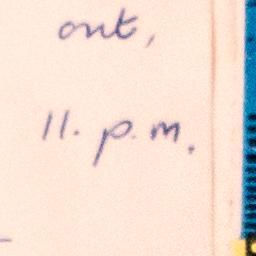 out,
11. p.m.